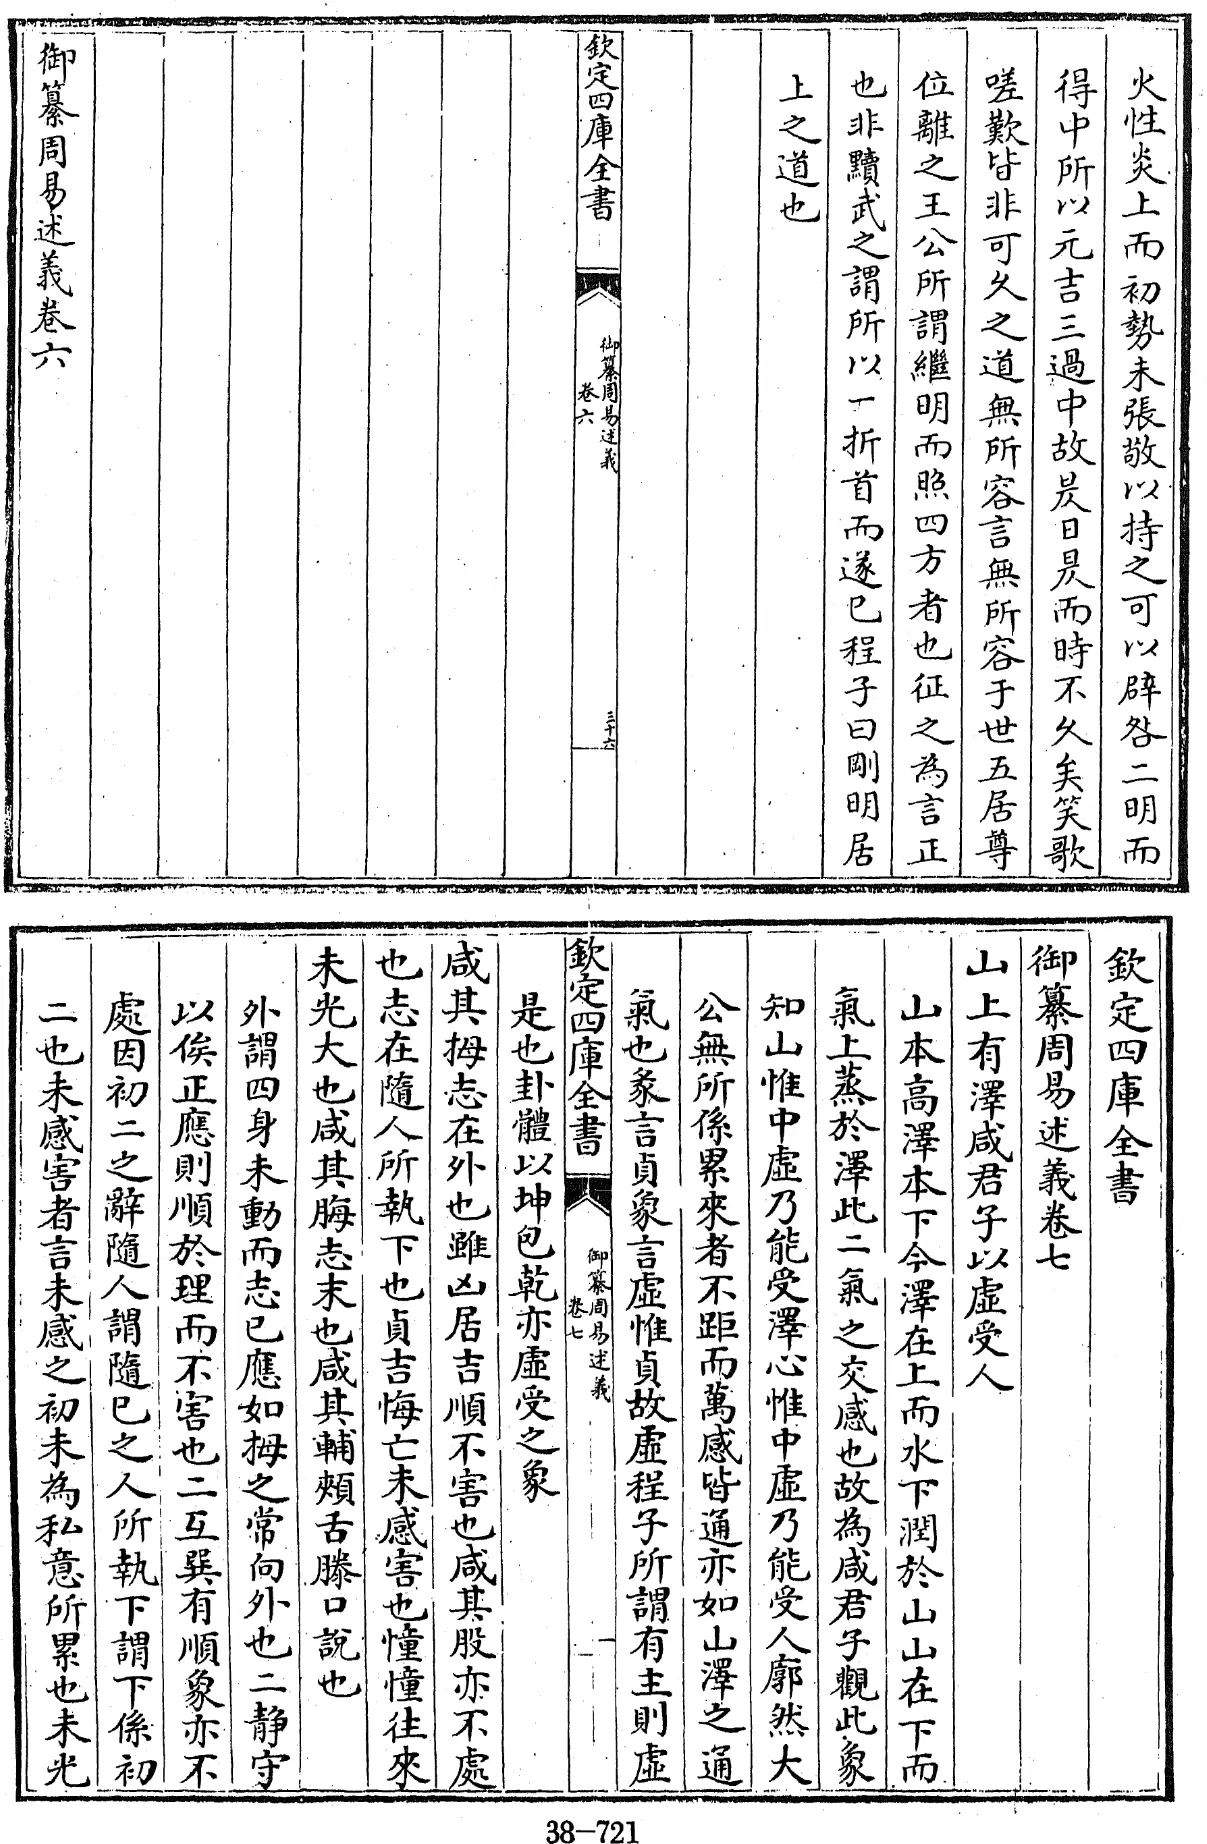 火性炎上而初勢未張敬以持之可以辟咎二明而
得中所以元吉三過中故昃日昃而時不久矣笑歌
嗟歎皆非可久之道無所容言無所容于世五居尊
位離之王公所謂繼明而照四方者也征之為言正
也非黷武之謂所以一折首而遂已程子曰剛明居
上之道也
欽定四庫全書
御纂周易述義
卷六
三十六
御纂周易述義卷六
欽定四庫全書
御纂周易述義卷七
山上有澤咸君子以虛受人
山本高澤本下今澤在上而水下潤於山山在下而
氣上蒸於澤此二氣之交感也故為咸君子觀此象
知山惟中虛乃能受澤心惟中虛乃能受人廓然大
公無所係累來者不距而萬感皆通亦如山澤之通
氣也彖言貞象言虛惟貞故虛程子所謂有主則虛
欽定四庫全書
御纂周易述義
卷七
一
是也卦體以坤包乾亦虛受之象
咸其拇志在外也雖凶居吉順不害也咸其股亦不處
也志在隨人所執下也貞吉悔亡未感害也憧憧往來
未光大也咸其脢志末也咸其輔頰舌滕口說也
外謂四身未動而志已應如拇之常向外也二靜守
以俟正應則順於理而不害也二互巽有順象亦不
處因初二之辭隨人謂隨已之人所執下謂下係初
二也未感害者言未感之初未為私意所累也未光
38-721